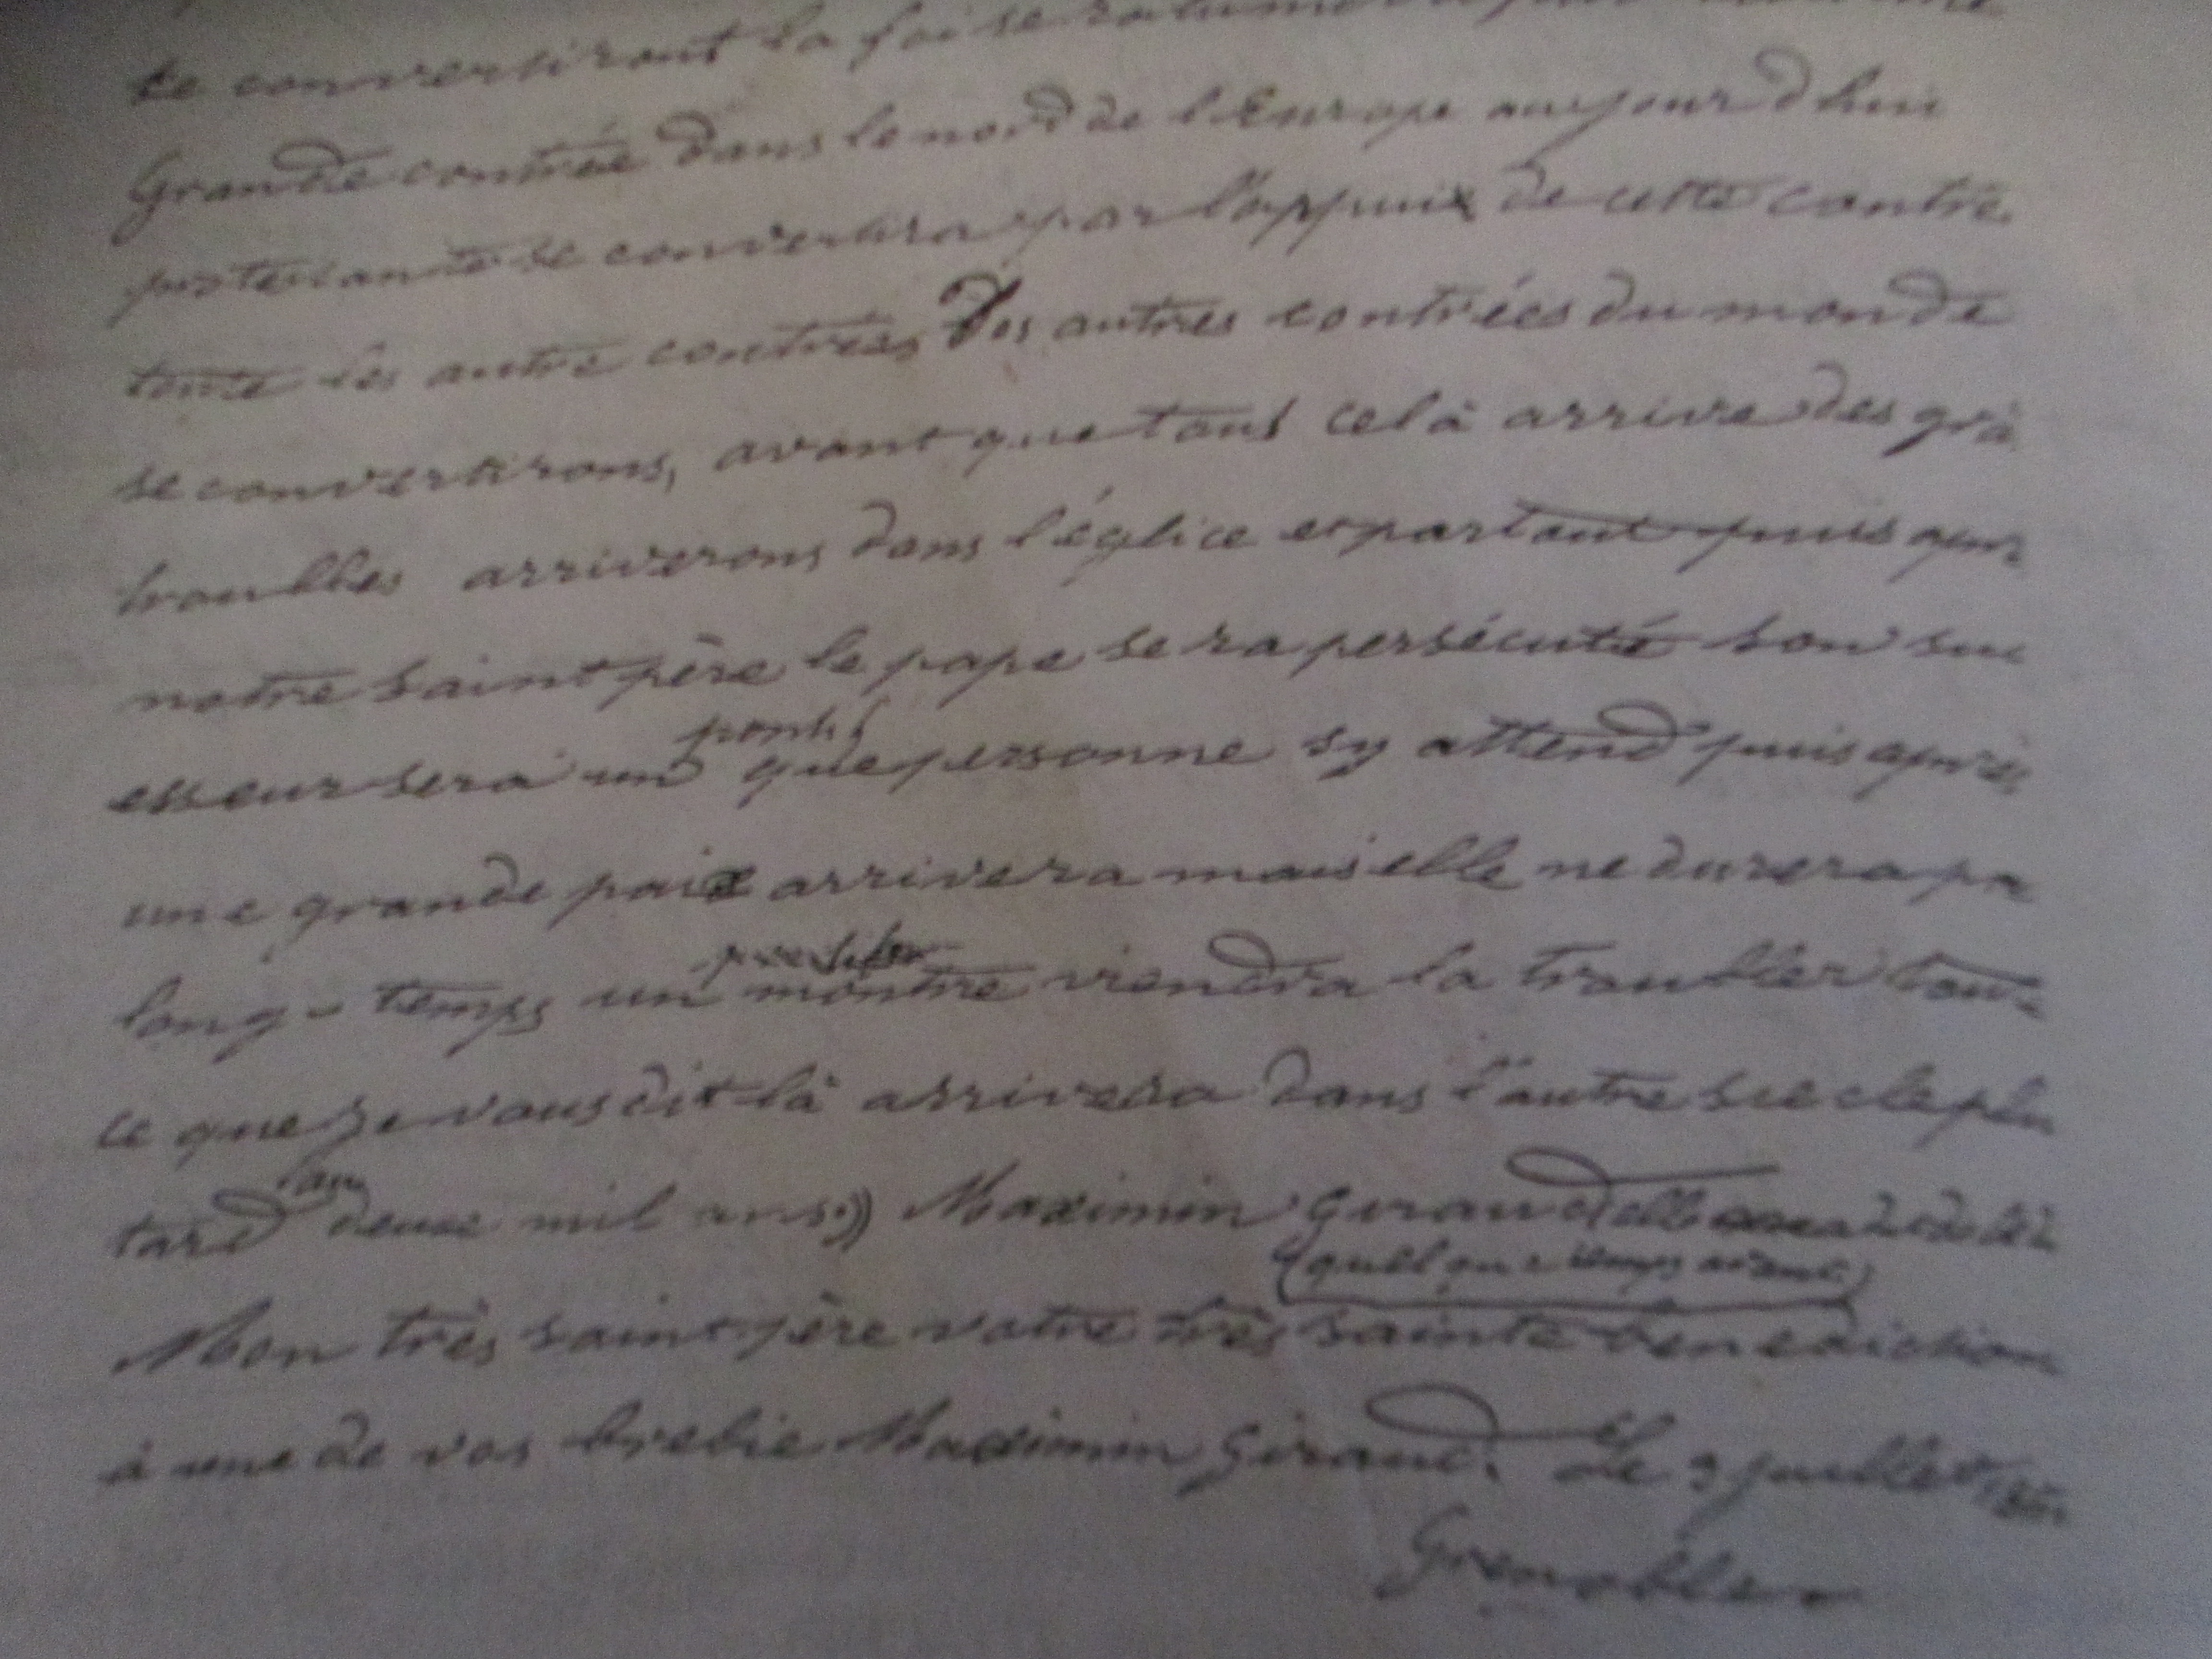 se convertiront la foi se ralumera
Grande contrée dans le nord de l'Europe aujourd'hui
protestante se convertira par l'appuix de cette contré
toute les autre contrées Des autres contrées du monde
se convertirons, avant que tout celà arrive des gra
troubles arriverons dans l'églice et partout puis apres
notre saint père le pape sera persécuté son suc
esseur sera un pontif que personne sy attend puis après
une grande paix arrivera mais elle ne durera pa
long-temps un monstre viendra la troubler tout
ce que je vous dit là arrivera dans l'autre siecle plu
tard deux mil ans.)) Maximin Giraud elle
(quelque temps avant)
Mon très saint père votre très sainte benediction
à une de vos brebie Maximin Giraud. Le 3 juillet
Grenoble